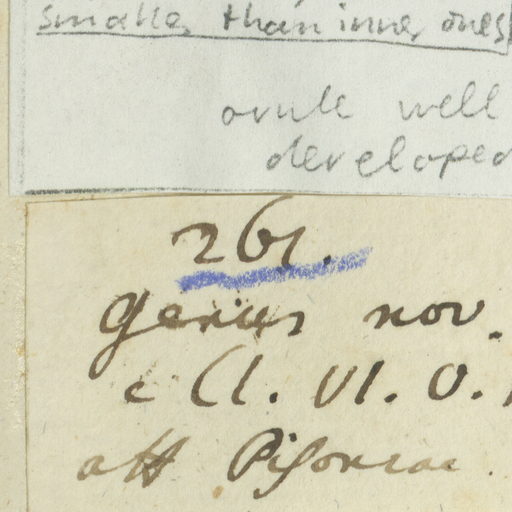 smaller than inner ones
ovule well
developed
261.
Genus nov.
e Cl. VI. O.
aff Pisoniae.